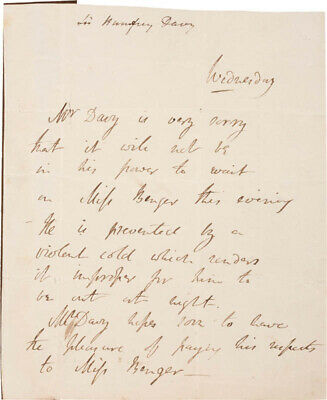 Sir Humfrey Davy
Wednesday
Mr Davy is very sorry
that it will not be
in his power to wait
on Miss Benger this evening
He is prevented by a
violent cold which renders
it improper for him to
be out at night.
Mr Davy hopes soon to have
the pleasure of paying his respects
to Miss Benger—